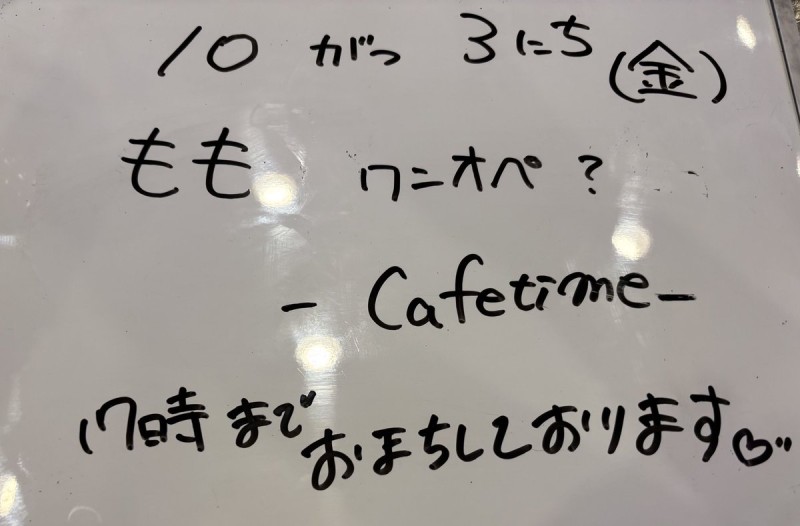 10 がつ 3にち (金)
もも ワニオペ ?
- Cafetime -
17時まで おまちしております♡